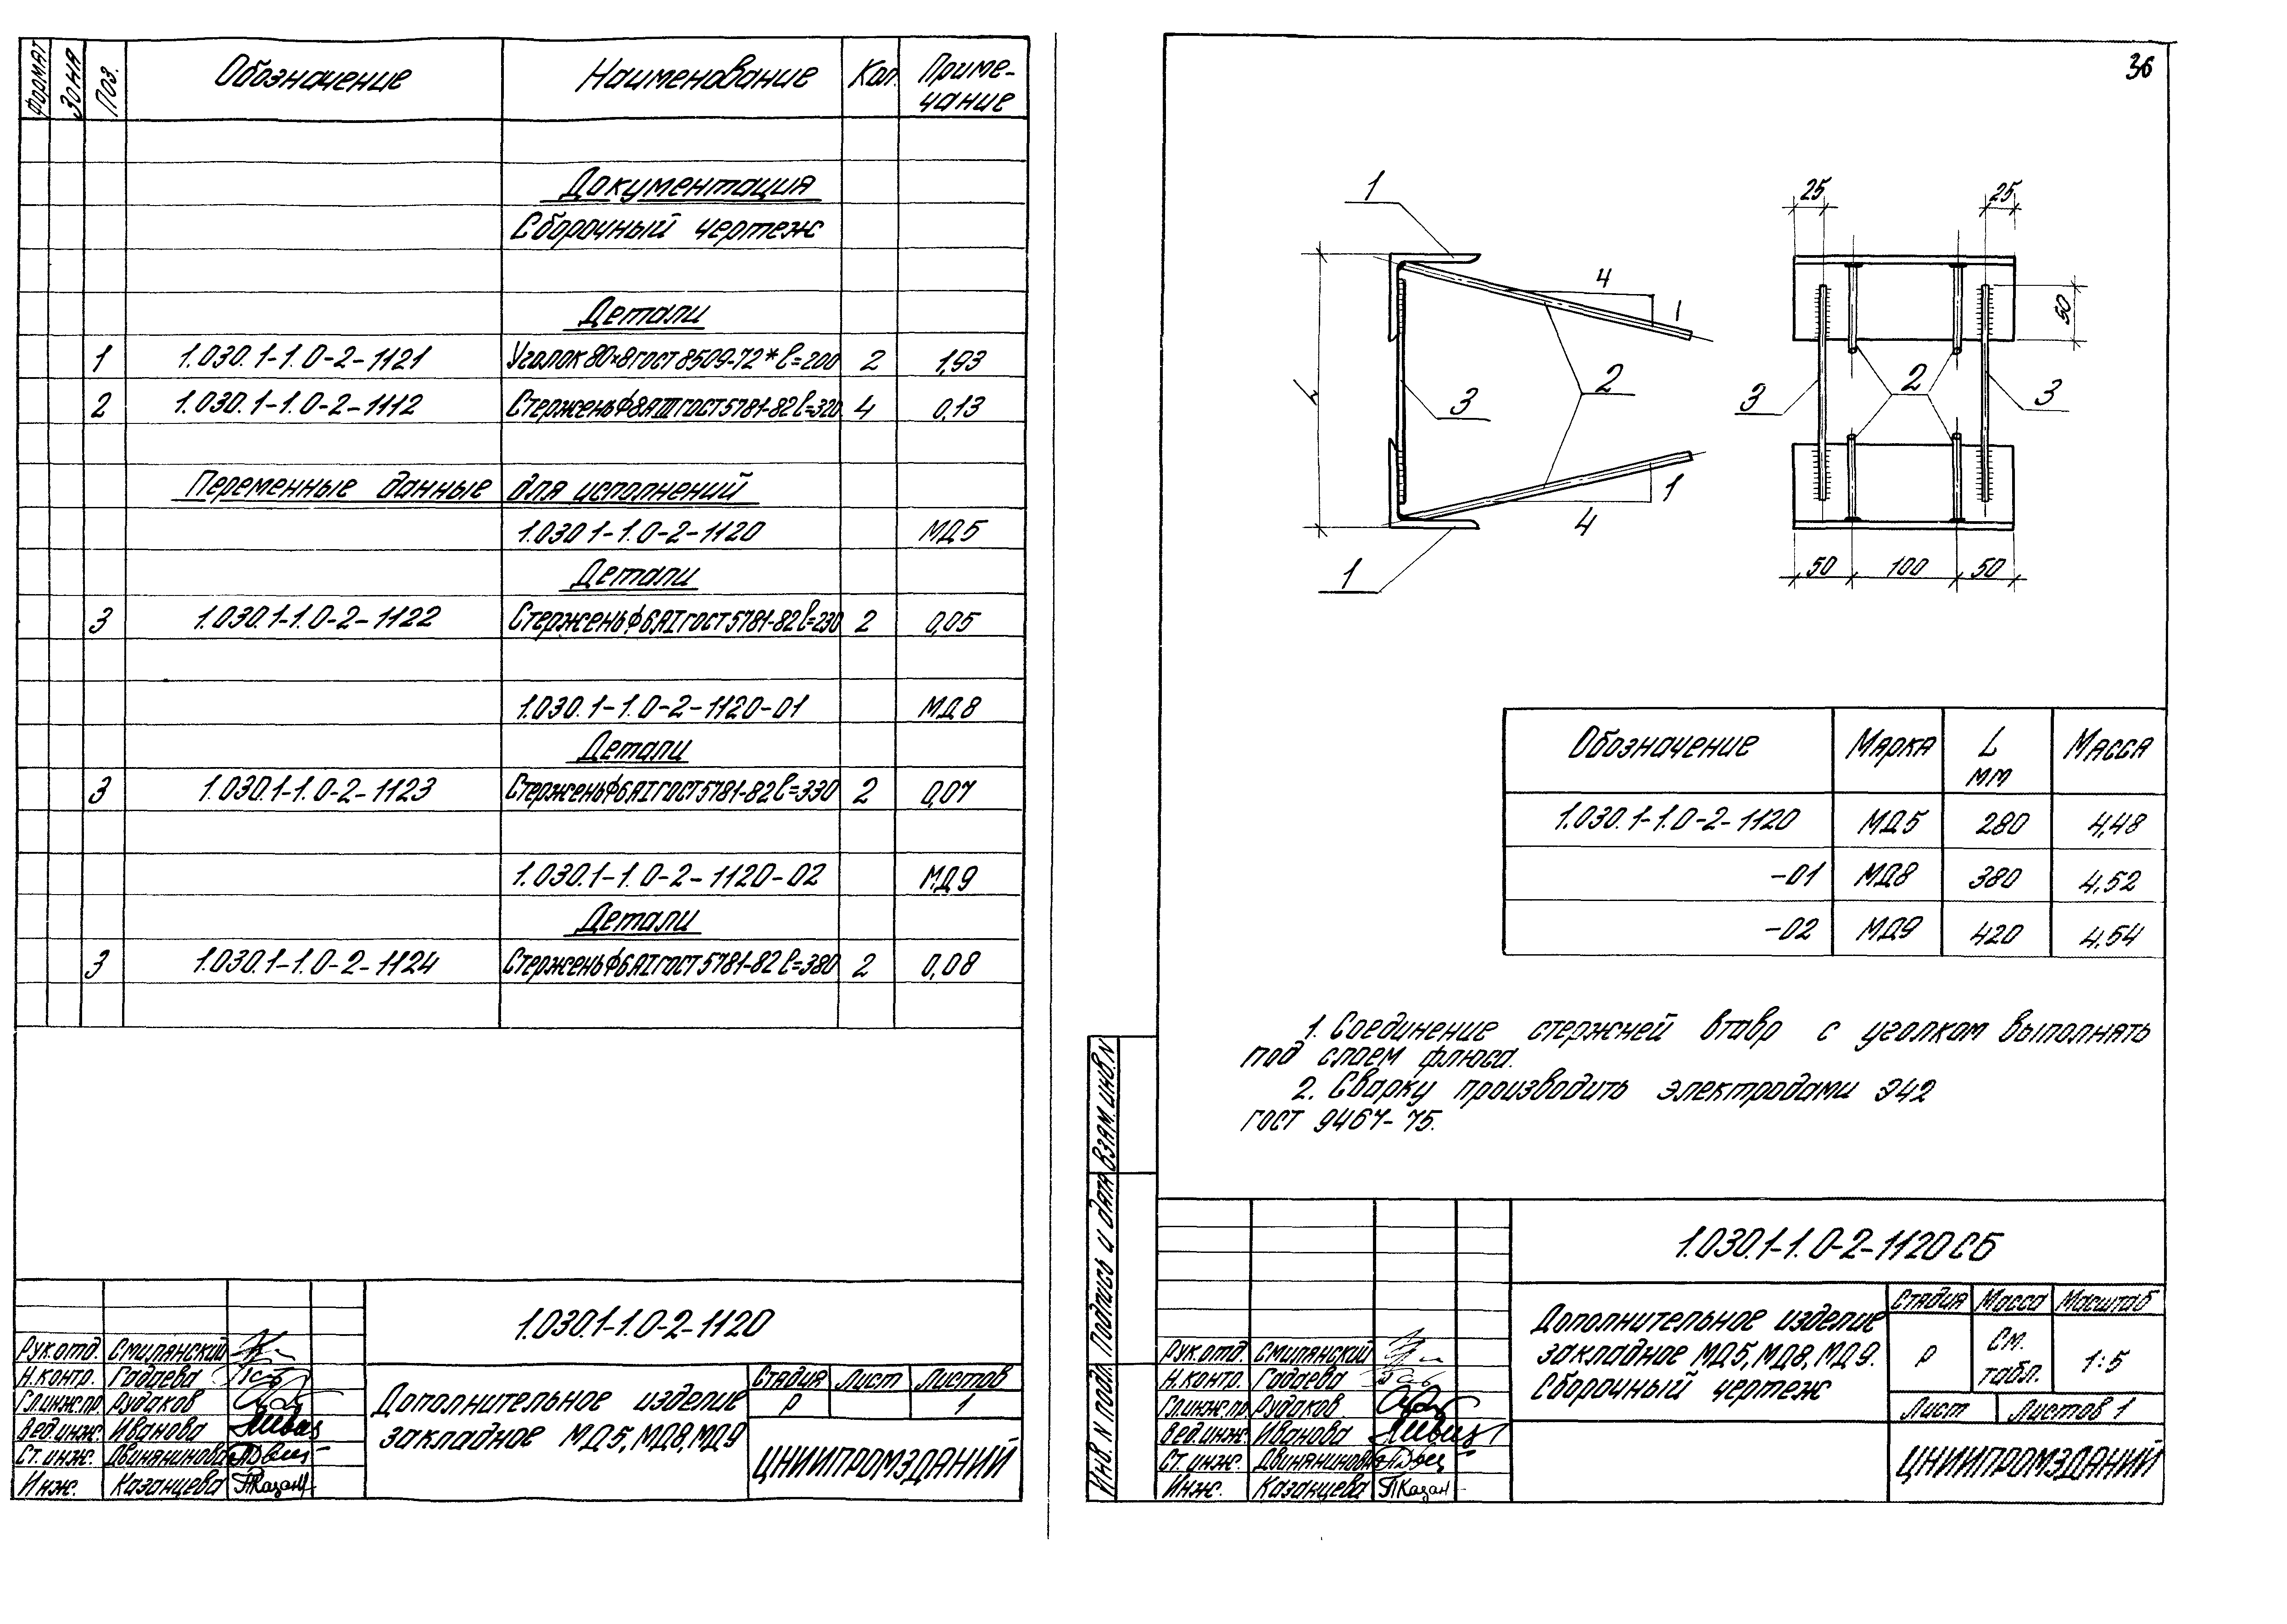 Формат Зона Поз. Обозначение Наименование Кол. Приме-
чание
Документация
Сборочный чертеж
Детали
1 1.030.1-1.0-2-1121 Уголок 80×8 ГОСТ 8509-72* l=200 2 1,93
2 1.030.1-1.0-2-1112 Стержень ф8АIII ГОСТ 5781-82 l=320 4 0,13
Переменные данные для исполнений
1.030.1-1.0-2-1120 МД5
Детали
3 1.030.1-1.0-2-1122 Стержень ф6АI ГОСТ 5781-82 l=230 2 0,05
1.030.1-1.0-2-1120-01 МД8
Детали
3 1.030.1-1.0-2-1123 Стержень ф6АI ГОСТ 5781-82 l=330 2 0,07
1.030.1-1.0-2-1120-02 МД9
Детали
3 1.030.1-1.0-2-1124 Стержень ф6АI ГОСТ 5781-82 l=380 2 0,08
1.030.1-1.0-2-1120
Рук.отд. Смилянский
Н.контр. Гадаева
Гл.инж.пр. Рудаков
Вед.инж. Иванова
Ст.инж. Двинянинова
Инж. Казанцева
Дополнительное изделие
закладное МД5, МД8, МД9
Стадия Лист Листов
Р 1
ЦНИИПРОМЗДАНИЙ
36
1
4
1
2
3
L
1
4
1
25 25
50
2
3 3
50 100 50
Обозначение Марка L
мм Масса
1.030.1-1.0-2-1120 МД5 280 4,48
-01 МД8 380 4,52
-02 МД9 420 4,54
1. Соединение стержней втавр с уголком выполнять
под слоем флюса.
2. Сварку производить электродами Э42
ГОСТ 9467-75.
Взам. инв. N
Подпись и дата
Инв. N подл.
1.030.1-1.0-2-1120СБ
Рук.отд. Смилянский
Н.контр. Гадаева
Гл.инж.пр. Рудаков
Вед.инж. Иванова
Ст.инж. Двинянинова
Инж. Казанцева
Дополнительное изделие
закладное МД5, МД8, МД9.
Сборочный чертеж
Стадия Масса Масштаб
Р См.
табл. 1:5
Лист Листов 1
ЦНИИПРОМЗДАНИЙ